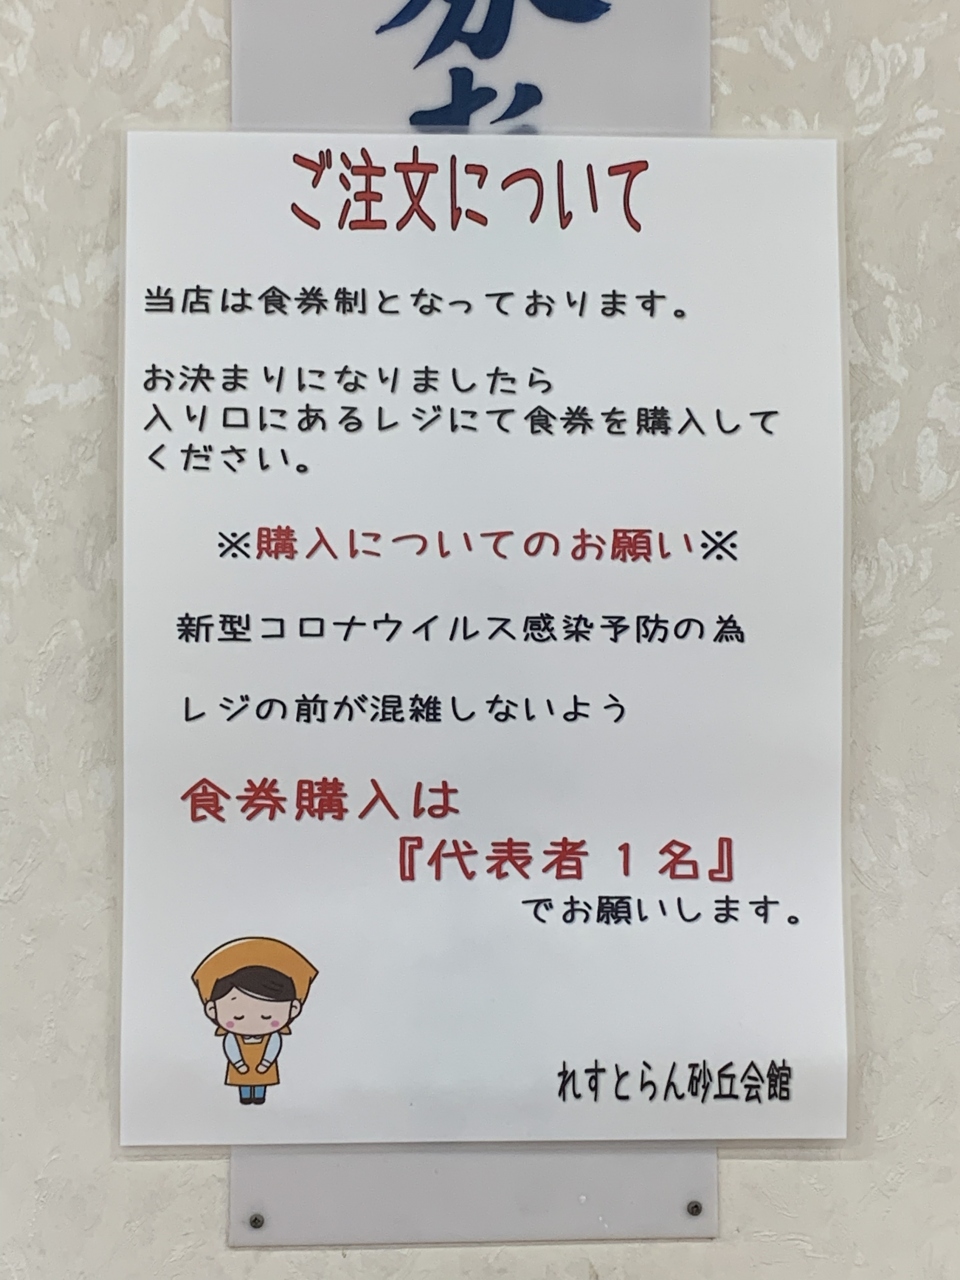 ご注文について
当店は食券制となっております。
お決まりになりましたら
入り口にあるレジにて食券を購入して
ください。
※購入についてのお願い※
新型コロナウイルス感染予防の為
レジの前が混雑しないよう
食券購入は
『代表者１名』
でお願いします。
れすとらん砂丘会館